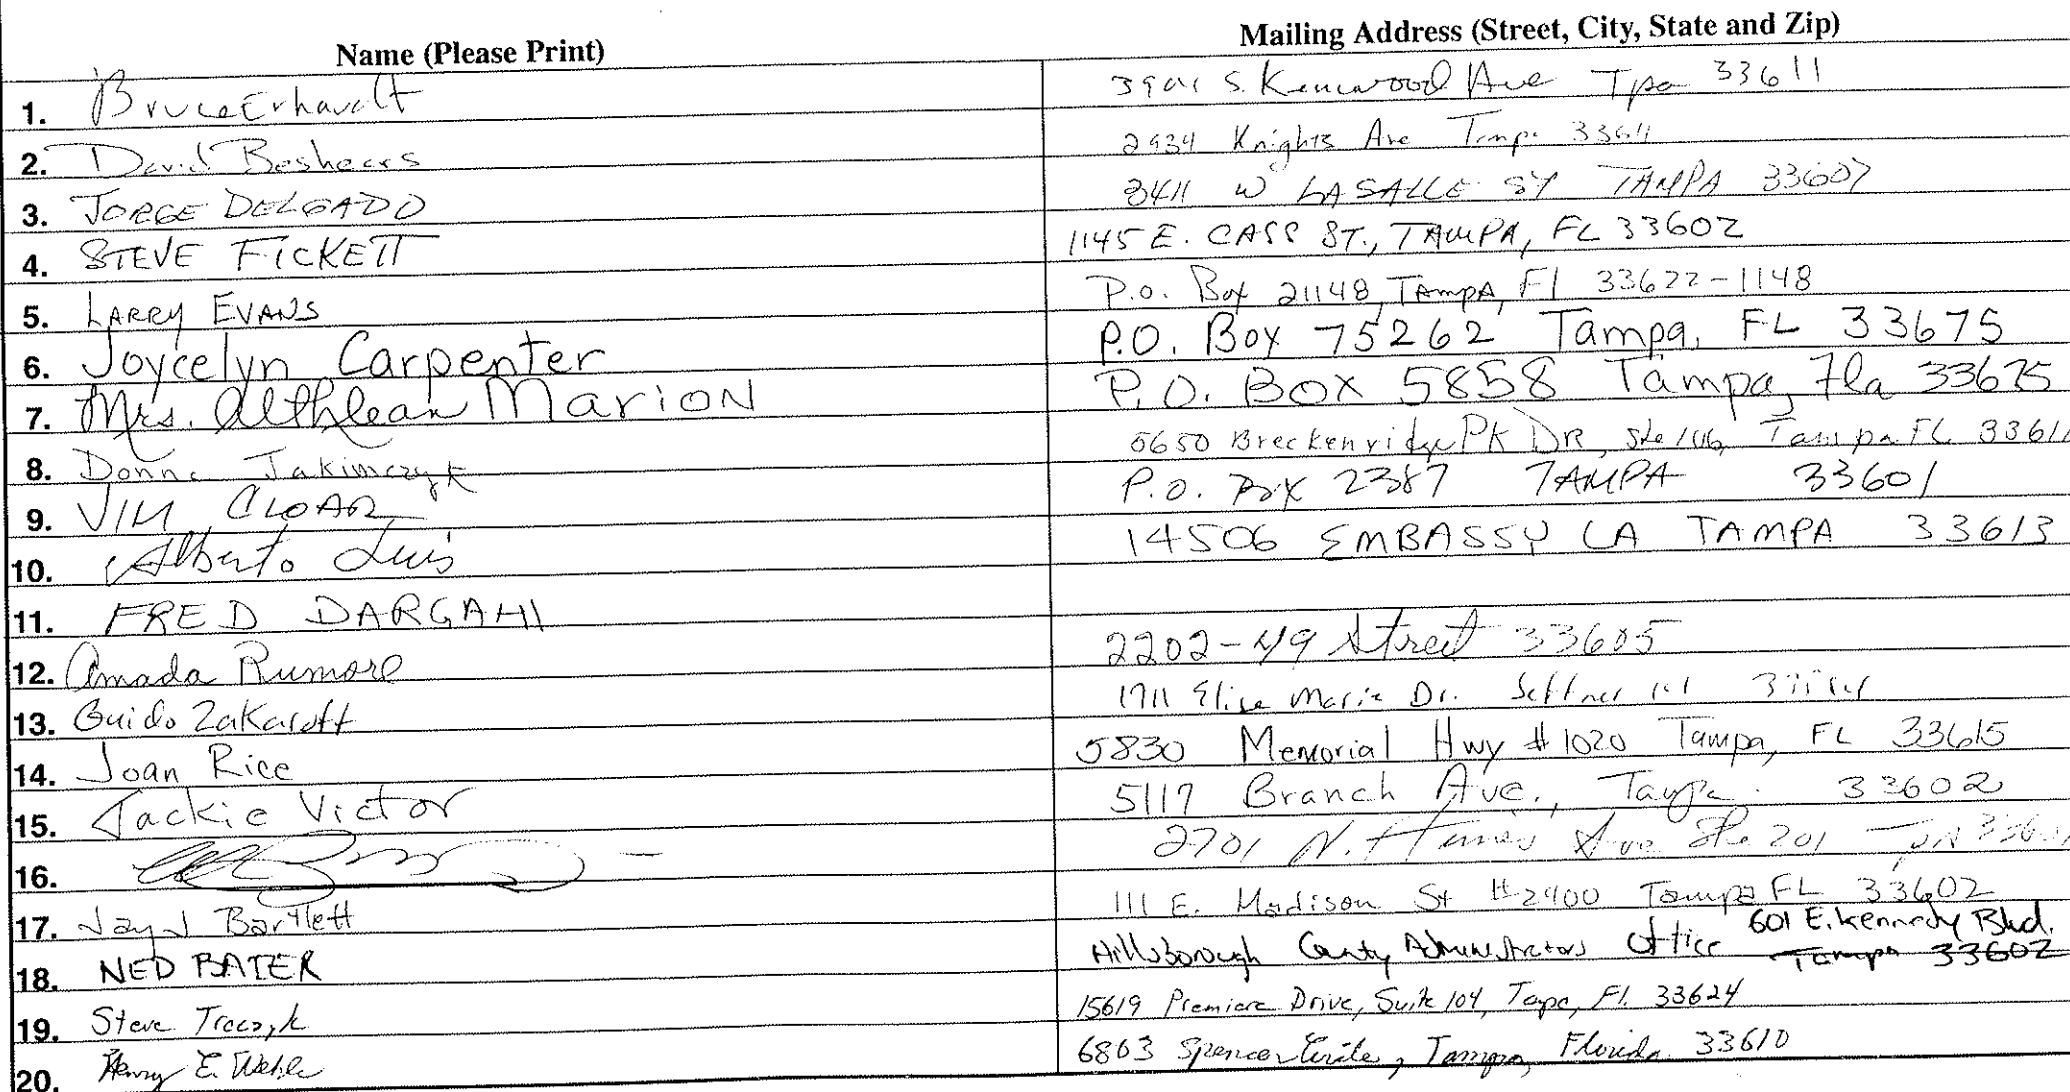 Name (Please Print) Mailing Address (Street, City, State and Zip)
1. Bruce Erhardt 3901 S. Kenwood Ave Tpa 33611
2. David Beshears 2934 Knights Ave Tampa 33611
3. JORGE DELGADO 3411 W LASALLE ST TAMPA 33607
4. STEVE FICKETT 1145 E. CASS ST., TAMPA, FL 33602
5. LARRY EVANS P.O. Box 21148, TAMPA, Fl 33622-1148
6. Joycelyn Carpenter P.O. Box 75262 Tampa, FL 33675
7. Mrs. Althlean MARION P.O. BOX 5858 Tampa, Fla 33675
8. Donna Jakimczyk 5650 Breckenridge PK DR, Ste 106, Tampa FL
9. JIM CLOAR P.O. Box 2387 TAMPA 33601
10. Alberto Luis 14506 EMBASSY LA TAMPA 33613
11. FRED DARGAHI
12. Amada Rumore 2202-49 Street 33605
13. Guido Zakaroff 1711 Elise Marie Dr. Seffner
14. Joan Rice 5830 Memorial Hwy #1020 Tampa, FL 33615
15. Jackie Victor 5117 Branch Ave., Tampa 33602
16. 2701 N. Himes Ave Ste 201
17. Jay J Bartlett 111 E. Madison St #2400 Tampa FL 33602
18. NED BAIER Hillsborough County Administrators Office 601 E. Kennedy Blvd.
Tampa 33602
19. Steve Traczyk 15619 Premiere Drive, Suite 104, Tapa, Fl. 33624
20. Henry E. 6803 Spencer Circle, Tampa, Florida 33610